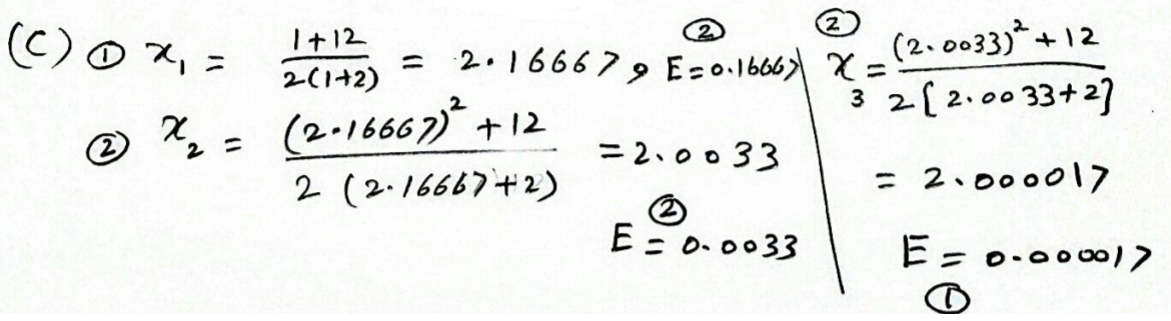 (C) ① x₁ = (1+12)/(2(1+2)) = 2.16667, ② E=0.16667
② x₂ = ((2.16667)² + 12)/(2 (2.16667+2)) = 2.0033
② E = 0.0033
② x₃ = ((2.0033)² + 12)/(2 [2.0033+2])
= 2.000017
E = 0.000017
①